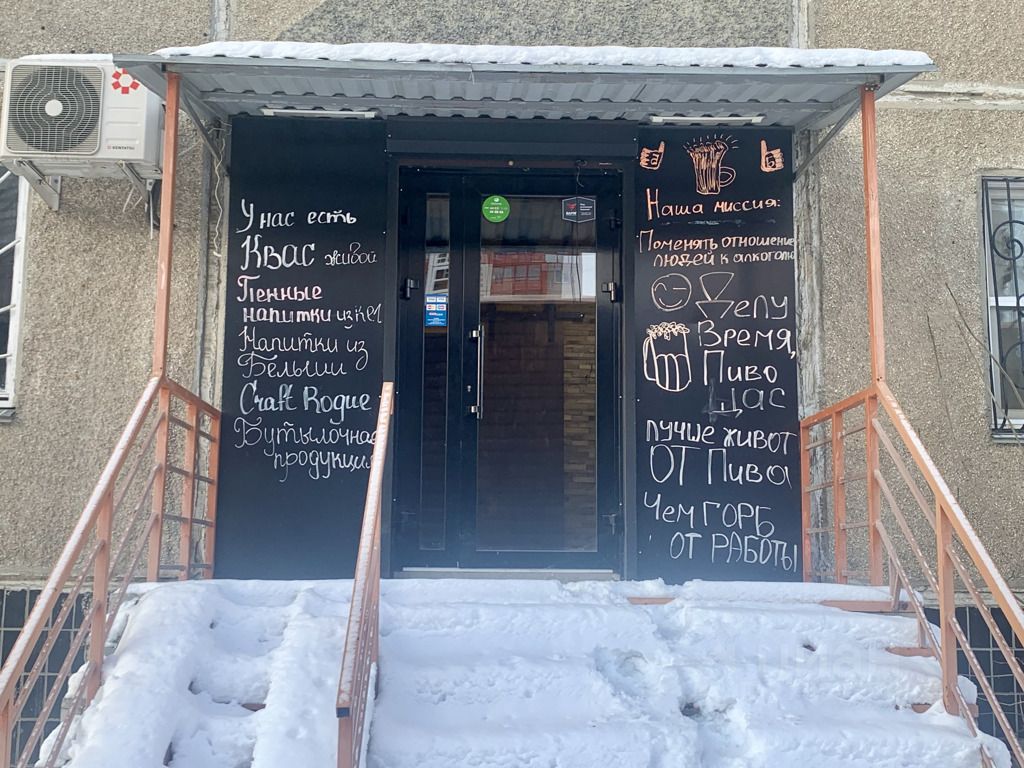 У нас есть
Квас живой
Пенные
напитки из кег
Напитки из
Бельгии
Craft Rogue
Бутылочная
продукция
Наша миссия:
Поменять отношение
людей к алкоголю
Делу
Время,
Пиво
Щас
лучше живот
от Пива
Чем ГОРБ
ОТ РАБОТЫ
KENTATSU